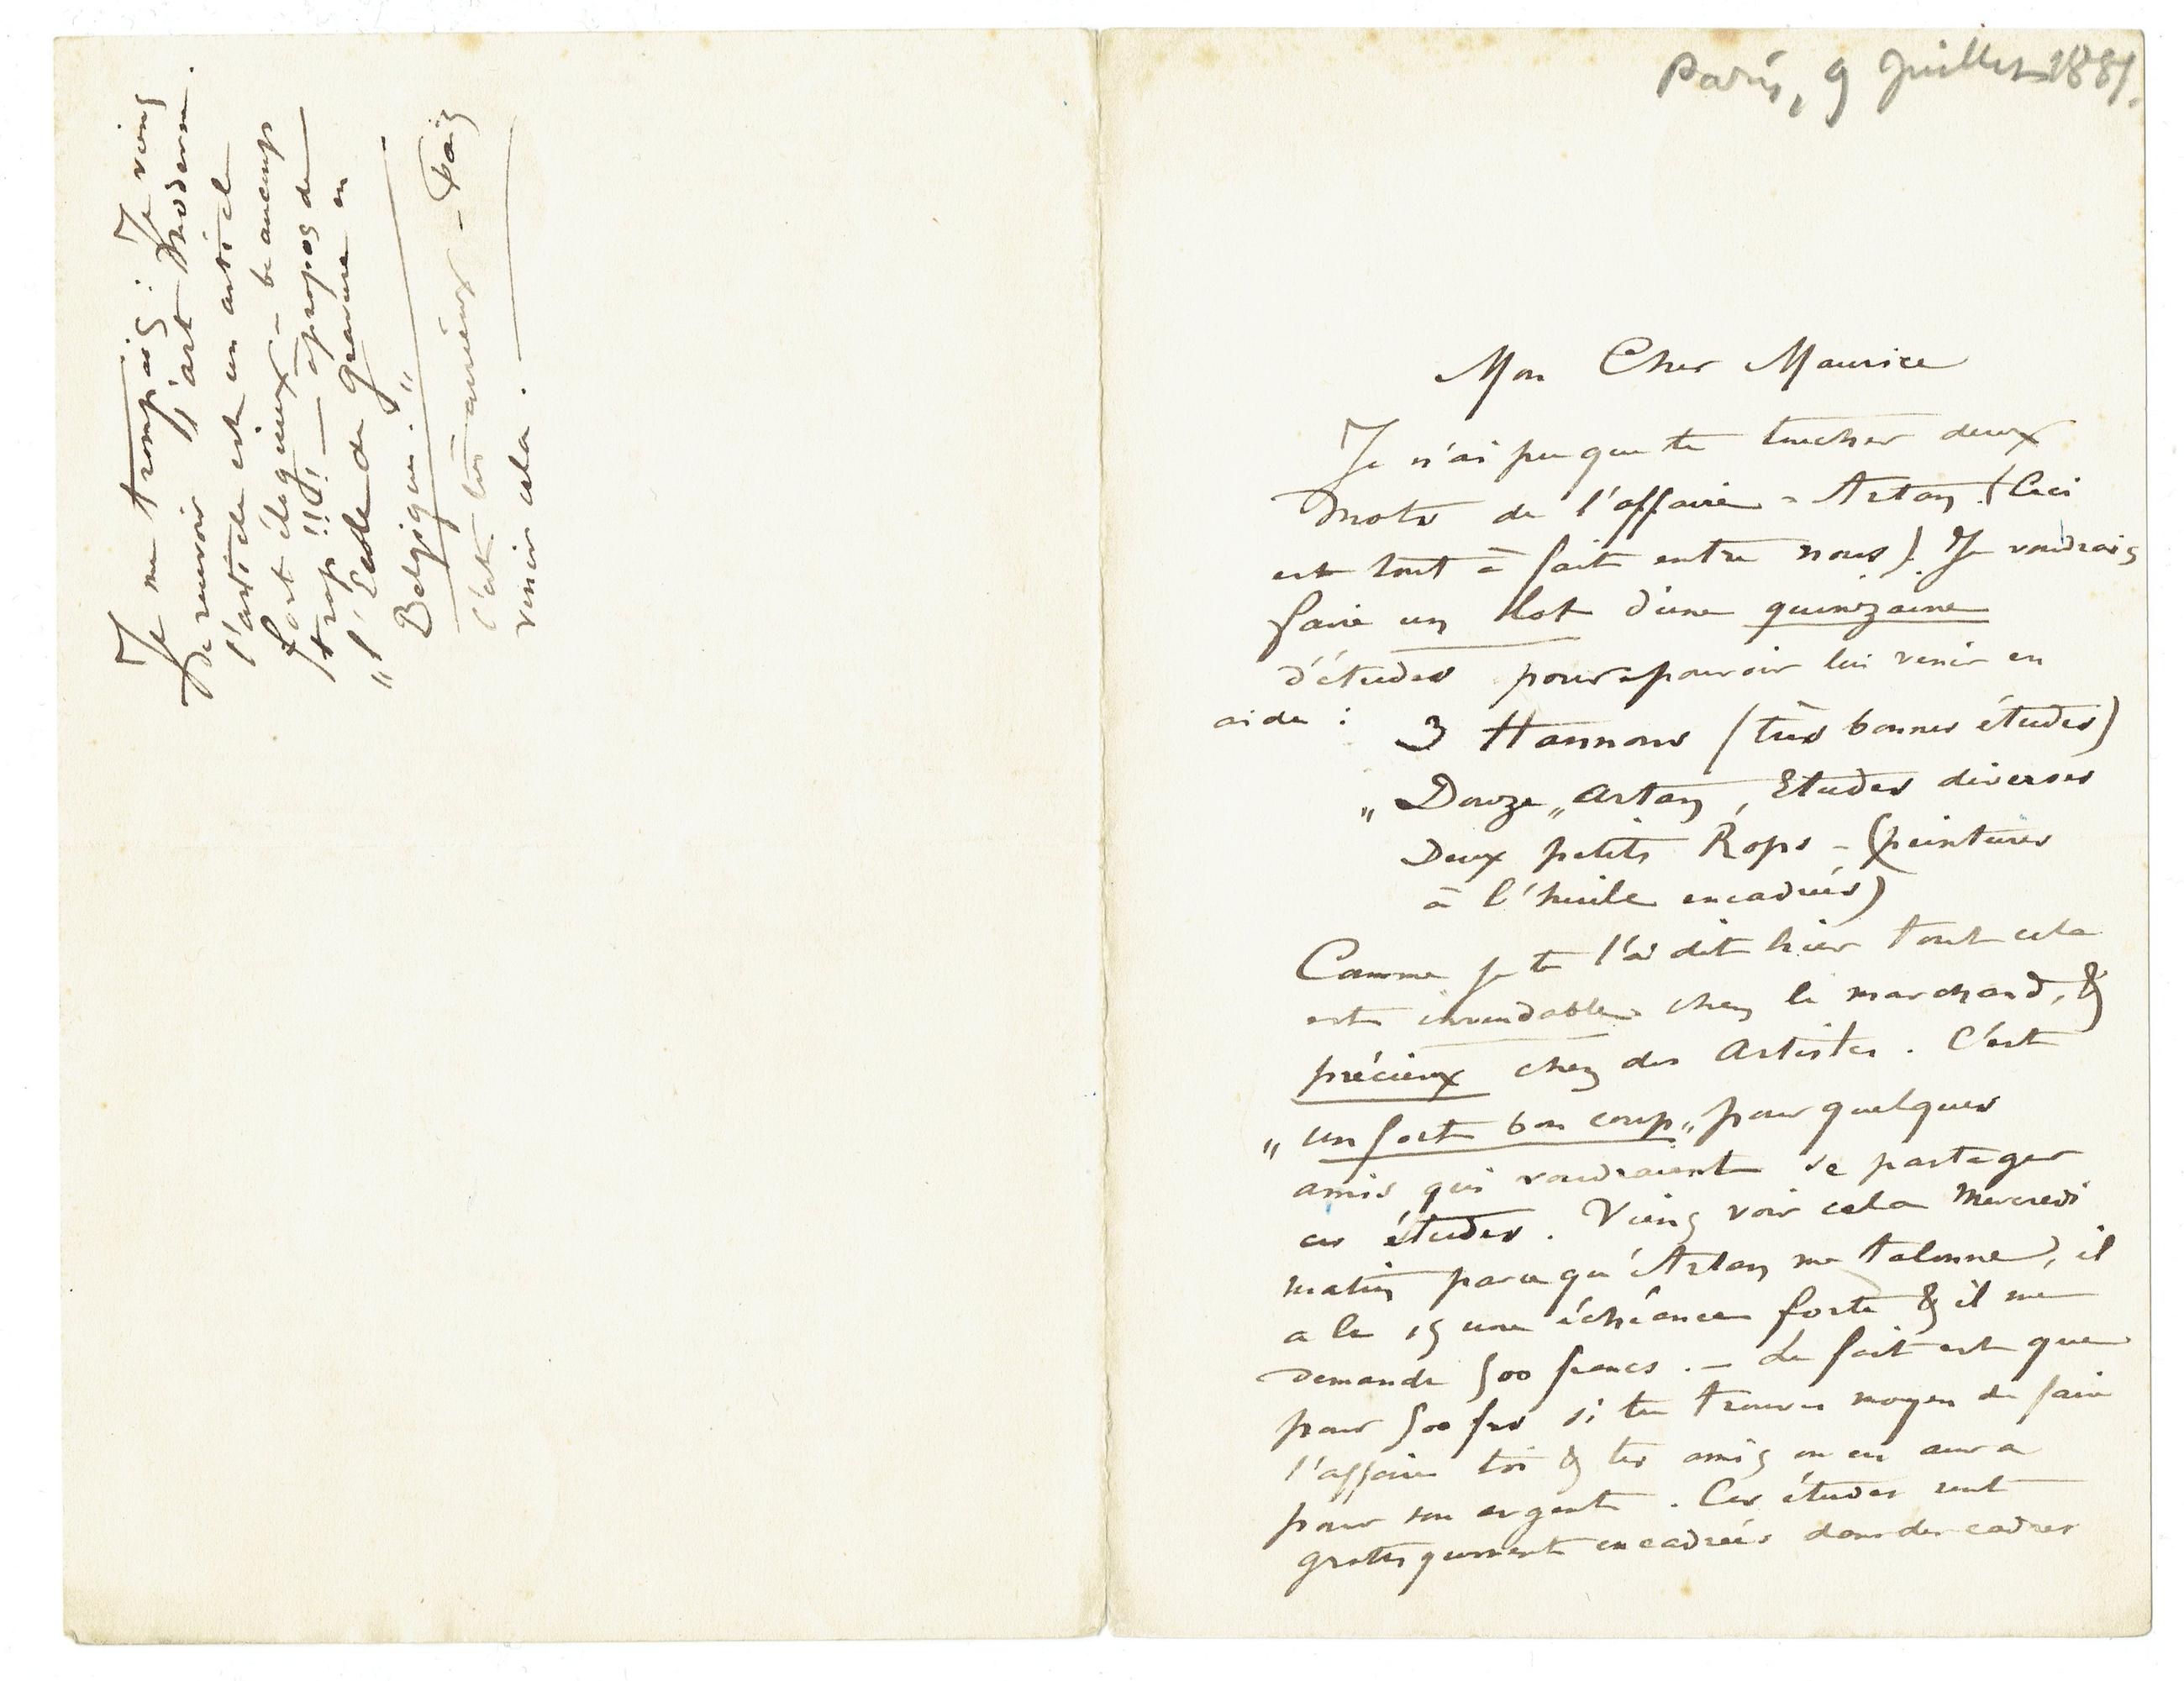 Paris, 9 Juillet 1881.
Mon Cher Maurice
Je n'ai pu que te toucher deux
mots de l'affaire - Artan. (Ceci
est tout à fait entre nous). Je voudrais
faire un lot d'une quinzaine
d'études pour pouvoir lui venir en
aide :
3 Hannons (très bonnes études)
„Douze„ Artan, Etudes diverses
Deux petits Rops - (peintures
à l'huile encadrées)
Comme je te l'ai dit hier tout cela
est invendable chez le marchand, &
précieux chez des Artistes. C'est
„un fort bon coup„ pour quelques
amis qui voudraient se partager
ces études. Viens voir cela Mercredi
matin parcequ'Artan me talonne, il
a le 15 une échéance forte & il me
demande 500 francs. - Le fait est que
pour 500 frs si tu trouves moyen de faire
l'affaire toi & tes amis on en aura
pour son argent. Ces études sont
grotesquement encadrées dans des cadres
Je me trompais : Je viens
de recevoir „l'art Moderne.
l'article est un article
fort élogieux - beaucoup
trop !!!! — à propos de
„l'Ecole de Gravure en
Belgique.„
C'est très curieux - Fais
venir cela.